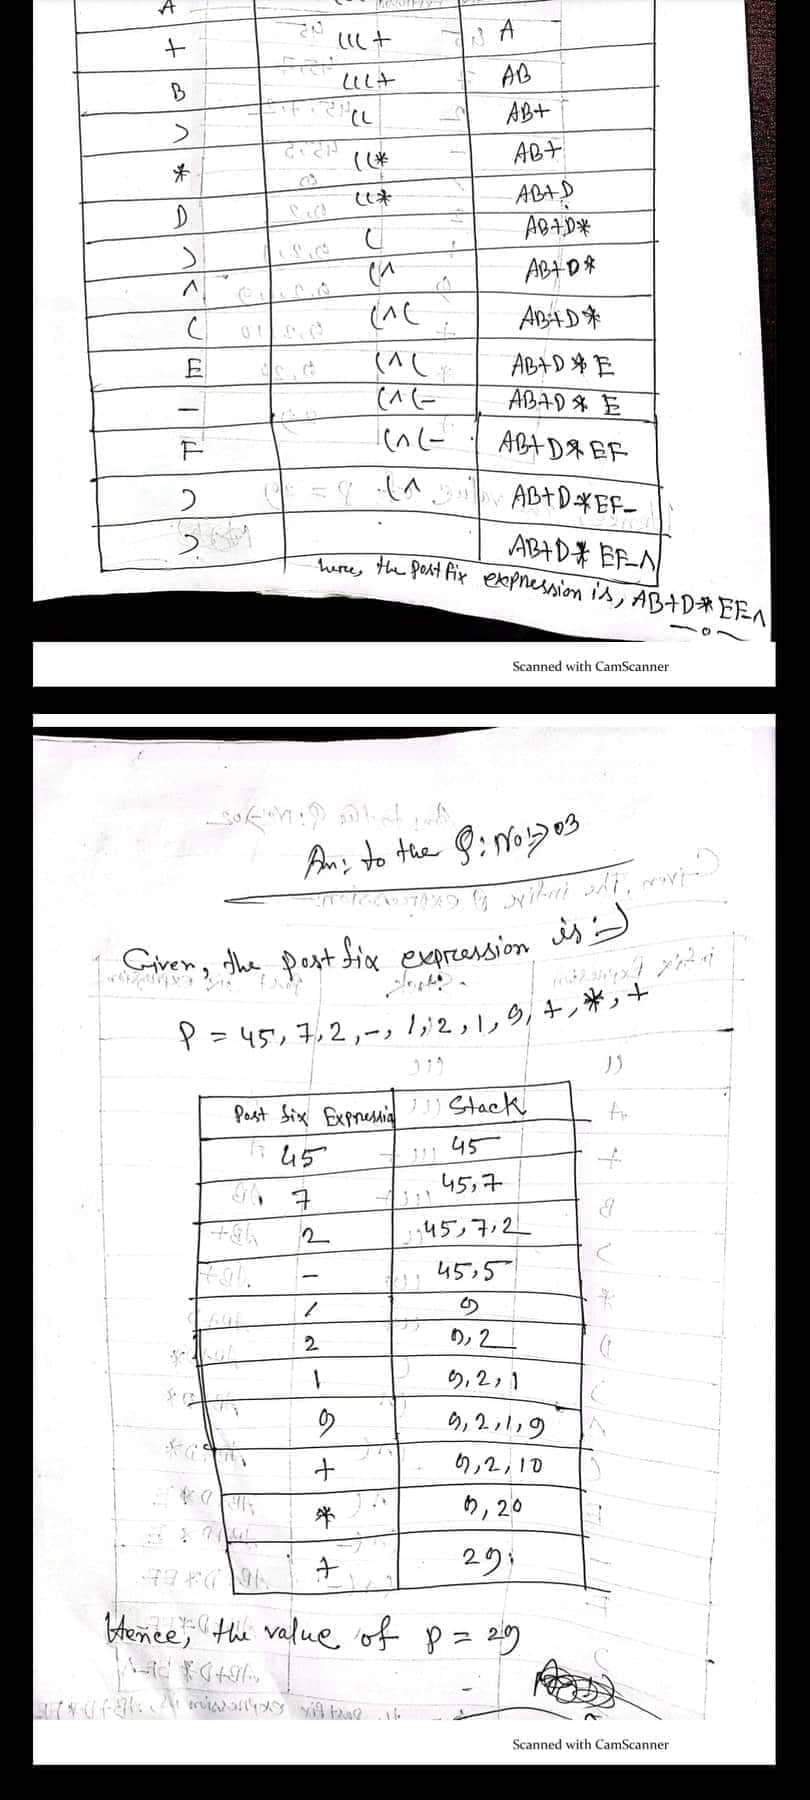 A
+ (((+ A
B (((+ AB
) (( AB+
* ((* AB+
D ((* AB+D
) ( AB+D*
^ (^ AB+D*
( (^( AB+D*
E (^( AB+D*E
- (^(- AB+D*E
F (^(- AB+D*EF
) (^ AB+D*EF-
) AB+D*EF-^
here, the post fix expression is, AB+D*EF-^
Scanned with CamScanner
Ans to the Q: No:→03
Given, the post fix expression is :→
P = 45, 7, 2, -, /, 2, 1, 9, +, *, +
Post fix Expressio Stack
45 45
7 45,7
2 45,7,2
- 45,5
/ 9
2 9,2
1 9,2,1
9 9,2,1,9
+ 9,2,10
* 9,20
+ 29
Hence, the value of P = 29
Scanned with CamScanner